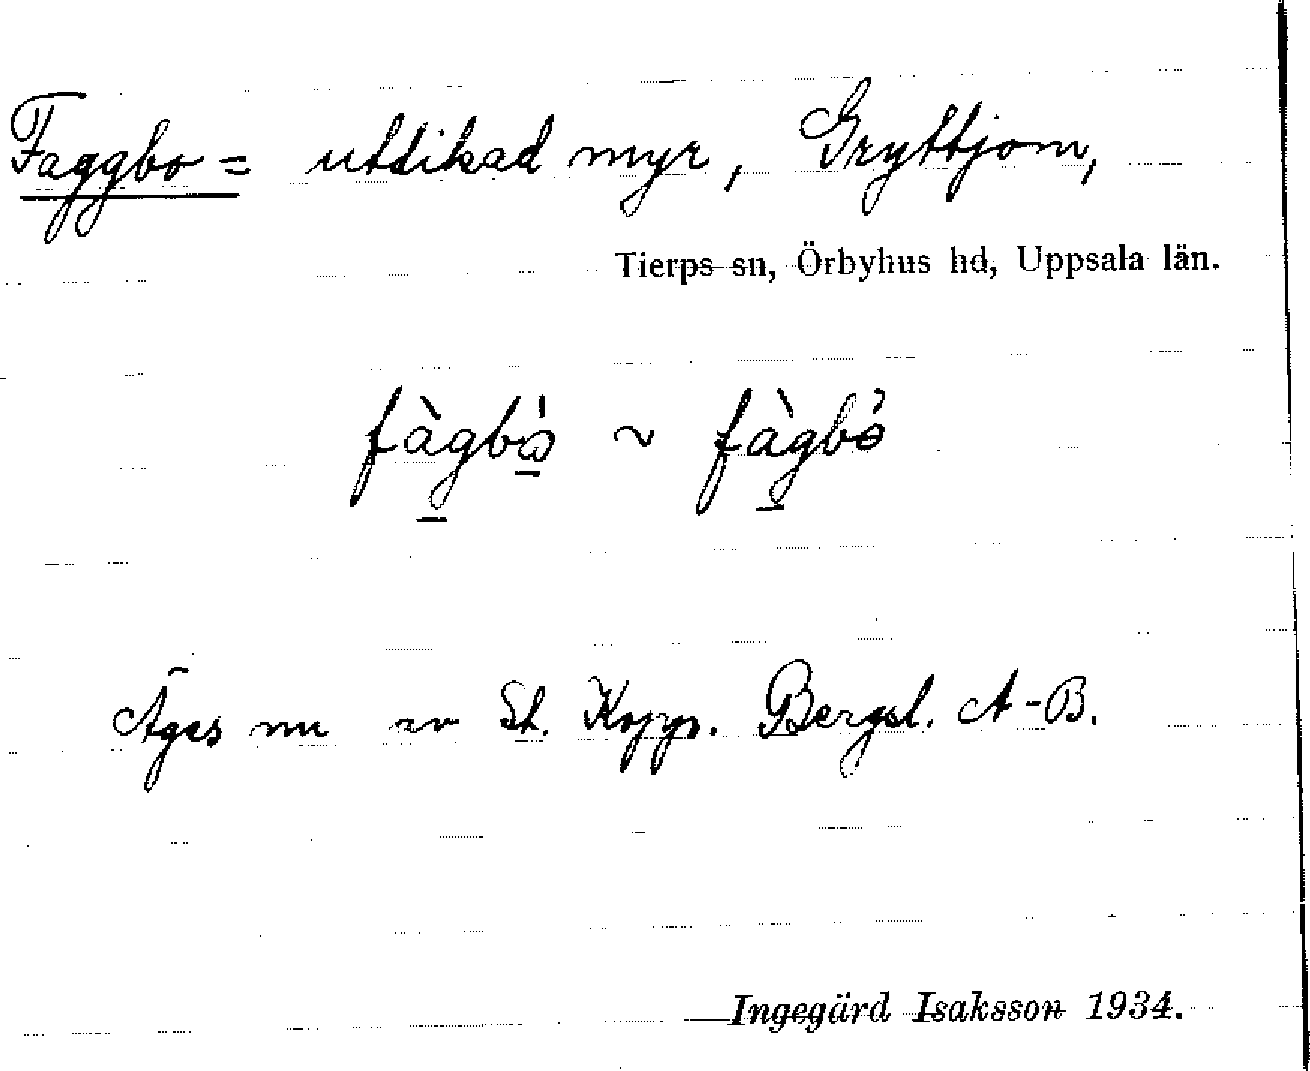 Faggbo = utdikad myr, Gryttjom,
Tierps sn, Örbyhus hd, Uppsala län.
fàgbɷ̀ ~ fàgbɵ̀
Äges nu av St. Kopp. Bergsl. A-B.
Ingegärd Isaksson 1934.